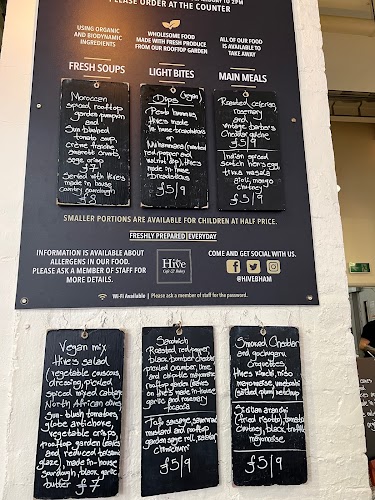 PLEASE ORDER AT THE COUNTER
TO 2PM
USING ORGANIC
AND BIODYNAMIC
INGREDIENTS
WHOLESOME FOOD
MADE WITH FRESH PRODUCE
FROM OUR ROOFTOP GARDEN
ALL OF OUR FOOD
IS AVAILABLE TO
TAKE AWAY
FRESH SOUPS
Moroccan
spiced rooftop
garden pumpkin
and
Sun-blushed
tomato soup
crème fraiche
amaretti crumb,
sage crisp
£7
Served with Hive's
made in house
country sourdough
£8
LIGHT BITES
Dips (vegan)
Pesto hummus,
Hive's made
in house breadsticks
or
Muhammara (roasted
red pepper and
walnut dip), Hive's
made in house
breadsticks
£5/9
MAIN MEALS
Roasted celeriac,
rosemary
and
vintage barbers
Cheddar quiche
£5/9
Indian spiced
scotch hen's egg,
tikka masala
aioli, mango
chutney
£5/9
SMALLER PORTIONS ARE AVAILABLE FOR CHILDREN AT HALF PRICE.
FRESHLY PREPARED EVERYDAY
INFORMATION IS AVAILABLE ABOUT
ALLERGENS IN OUR FOOD.
PLEASE ASK A MEMBER OF STAFF FOR
MORE DETAILS.
Hive
Café & Bakery
COME AND GET SOCIAL WITH US.
@HIVEBHAM
Wi-Fi Available | Please ask a member of staff for the password.
Vegan mix
Hive's salad
(vegetable couscous,
dressing, pickled
spiced mixed cabbage
North African olives
Sun-blush tomatoes,
globe artichoke,
vegetable crisps
rooftop garden leaves
and reduced balsamic
glaze, made in-house
sourdough, black garlic
butter £7
Sandwich
Roasted red pepper,
black bomber cheddar
pickled cucumber, lime
and chipotle mayonnaise
rooftop garden leaves
on Hive's made in-house
garlic and rosemary
focaccia
Tofu sausage,
mustard and rooftop
garden sage roll,
chimichurri
£5/9
Smoked Cheddar
and gochugaru
Croquettes,
Hive's kimchi, miso
mayonnaise, umeboshi
(salted plum) ketchup
Sicilian arancini
(fried risotto), tomato
Chutney, black truffle
mayonnaise
£5/9